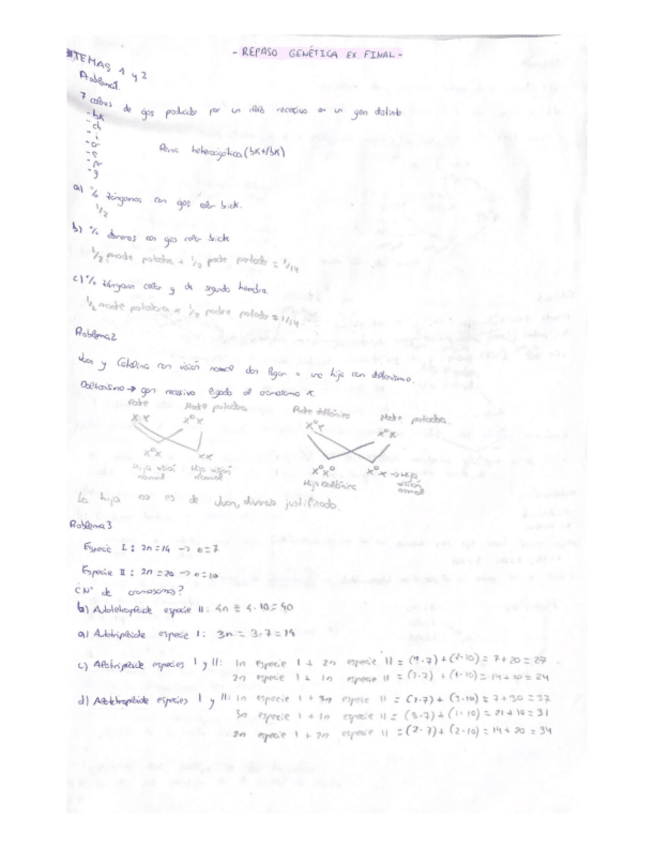 - REPASO GENÉTICA EX FINAL -
TEMAS 1 y 2
Problema1.
7 colores de ojos producidos por un alelo recesivo en un gen distinto
- bk
- cd
- g
Reina heterocigótica (bk+/bk)
a) % zánganos con ojos color brick.
1/2
b) % obreras con ojos color brick
1/2 madre portadora + 1/2 padre portador = 1/14
c) % zánganos color y de segunda hembra
1/2 madre portadora x 1/2 padre portador = 1/14
Problema2
Juan y Catalina con visión normal dan lugar a una hija con daltonismo.
Daltonismo → gen recesivo ligado al cromosoma X.
Padre Madre portadora Padre daltónico Madre portadora.
Hija visión normal Hijo visión normal
Hija Daltónica → Hija visión normal
La hija no es de Juan, divorcio justificado.
Problema3
Especie I : 2n = 14 → n = 7
Especie II : 2n = 20 → n = 10
¿Nº de cromosomas?
b) Autotetraploide especie II : 4n = 4 · 10 = 40
a) Autotriploide especie I : 3n = 3 · 7 = 14
c) Alotriploide especies I y II : 1n especie I + 2n especie II = (1·7) + (2·10) = 7 + 20 = 27
2n especie I + 1n especie II = (2·7) + (1·10) = 14 + 10 = 24
d) Alotetraploide especies I y II : 1n especie I + 3n especie II = (1·7) + (3·10) = 7 + 30 = 37
3n especie I + 1n especie II = (3·7) + (1·10) = 21 + 10 = 31
2n especie I + 2n especie II = (2·7) + (2·10) = 14 + 20 = 34